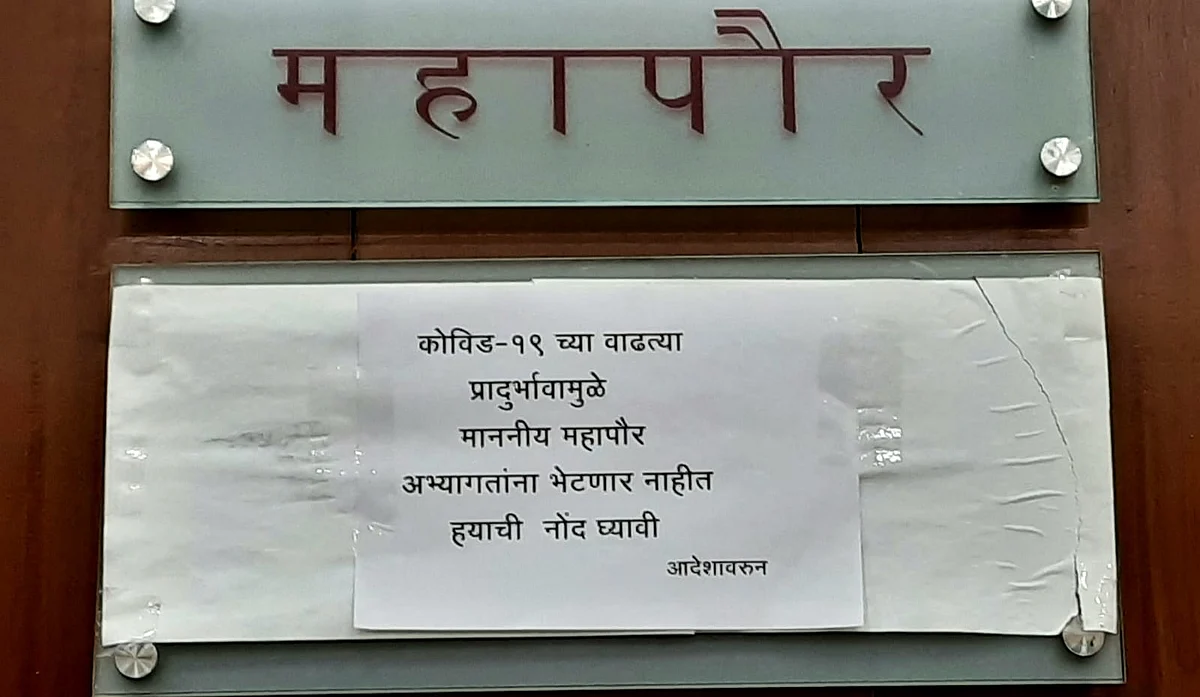 महापौर
कोविड-१९ च्या वाढत्या
प्रादुर्भावामुळे
माननीय महापौर
अभ्यागतांना भेटणार नाहीत
हयाची नोंद घ्यावी
आदेशावरुन